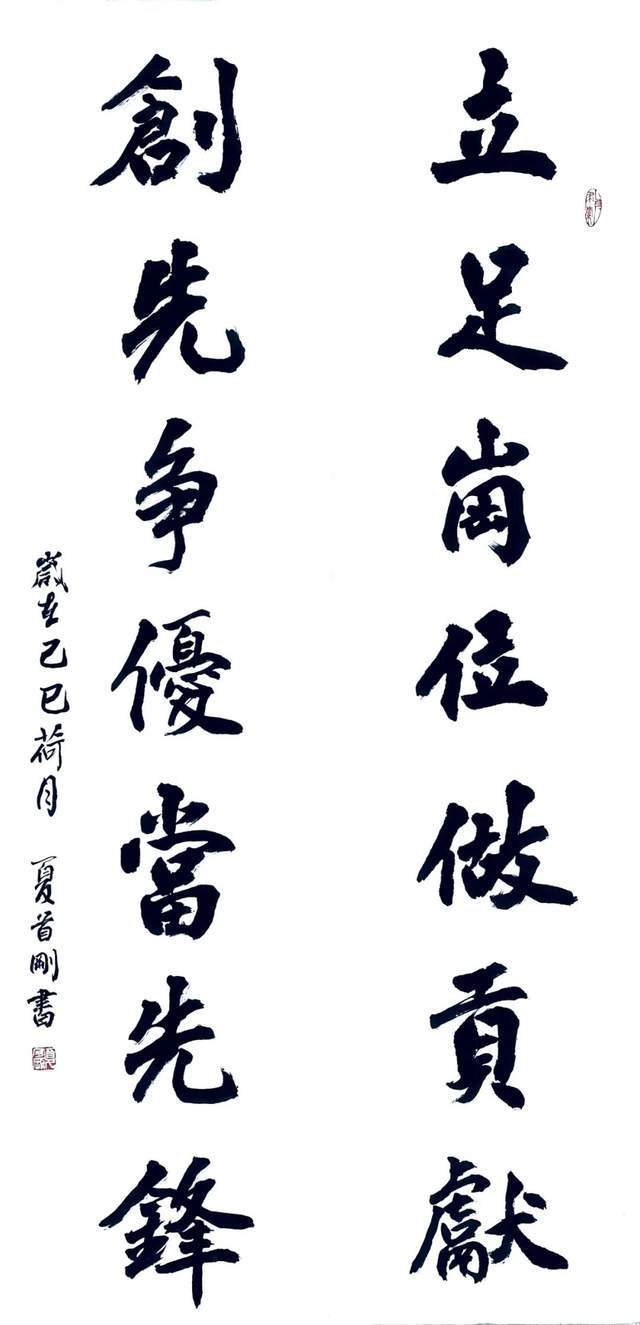 立足崗位做貢獻
創先争優當先鋒
歲在己巳荷月 夏首剛書